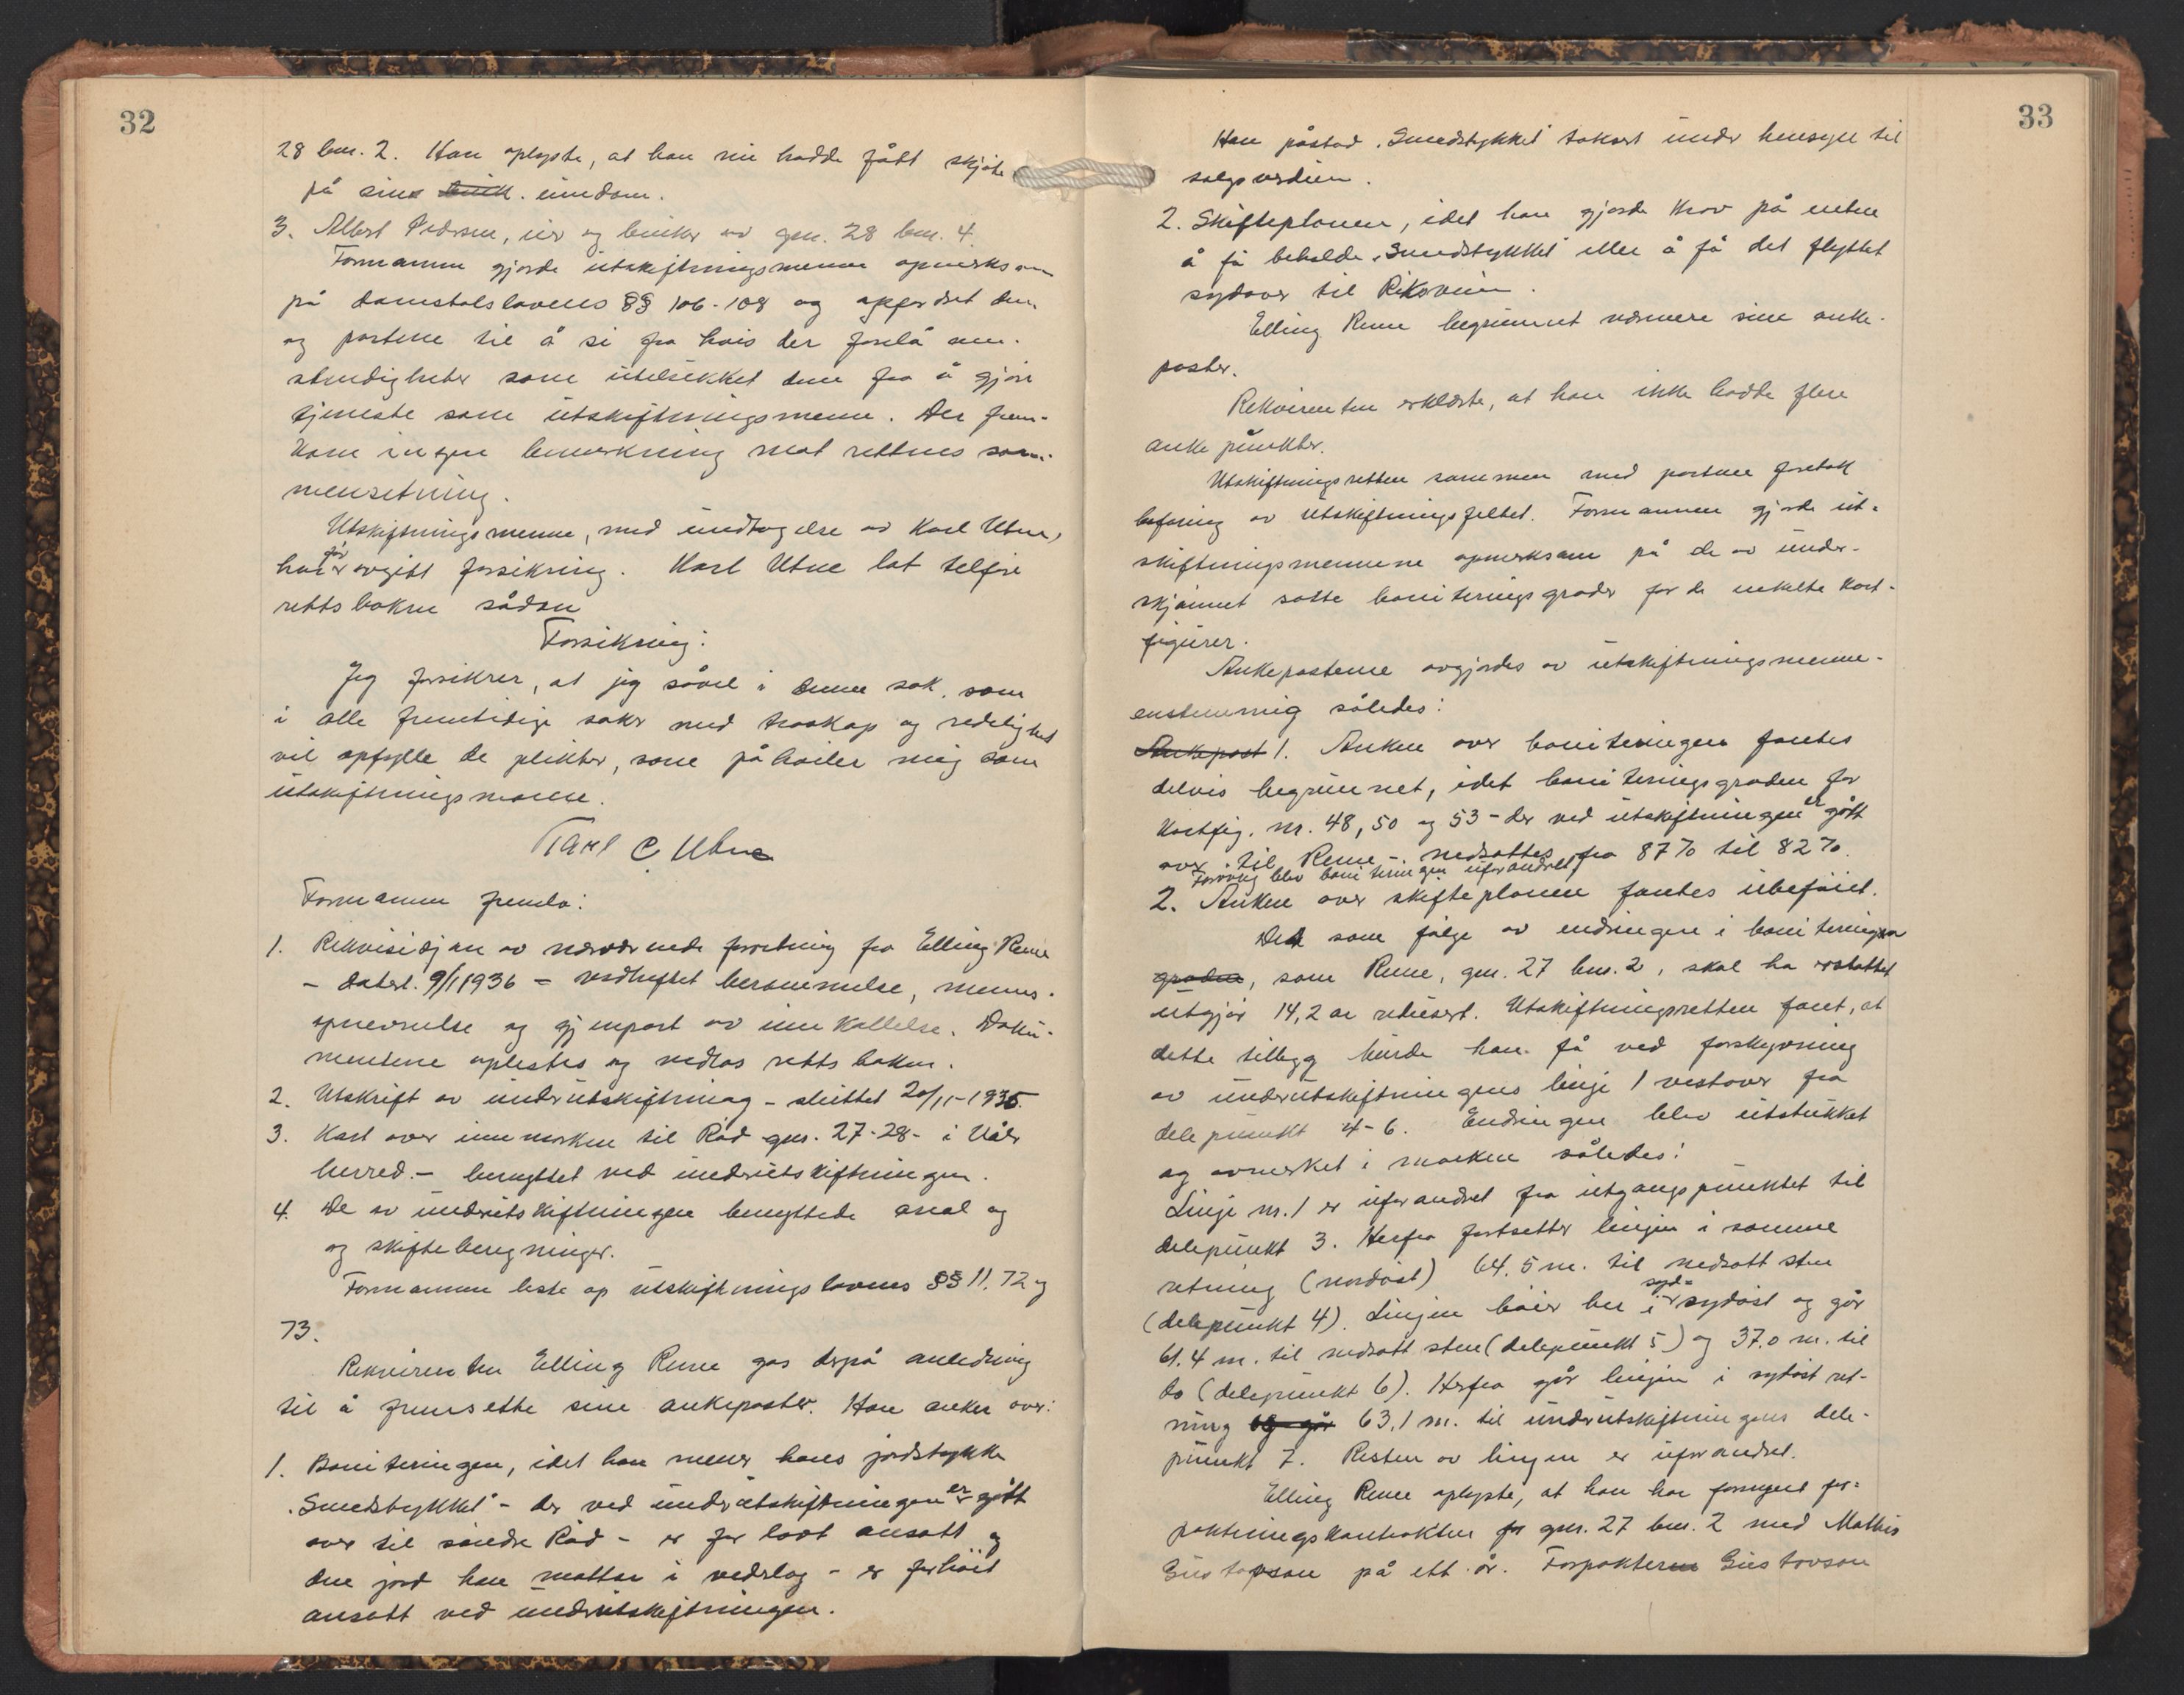 32
28 bnr. 2. Han oplyste, at han nu hadde fått skjøte
på sin eiendom.
3. Albert Pedersen, eier og bruker av gnr. 28 bnr. 4.
Formannen gjorde utskiftningsmenne opmerksom
på domstolslovens §§ 106-108 og opfordret dem
og partene til å si fra hvis der forelå om-
stendigheter som utelukket dem fra å gjøre
tjeneste som utskiftningsmenn. Der frem-
kom ingen bemerkning mot rettens sam-
mensetning.
Utskiftningsmenne, med undtagelse av Karl Utne,
har før avgitt forsikring. Karl Utne lot tilføre
rettsboken sådan
Forsikring:
Jeg forsikrer, at jeg såvel i denne sak, som
i alle fremtidige saker med troskap og redelighet
vil opfylle de plikter, som påhviler mig som
utskiftningsmann.
Karl C Utne
Formannen fremla:
1. Rekvisisjon av nærværende forretning fra Elling Rene
- datert. 9/1 1936 - vedheftet berammelse, menns-
opnevnelse og gjenpart av innkallelse. Doku-
mentene oplestes og vedlas rettsboken.
2. Utskrift av underutskiftning - sluttet 20/11-1935.
3. Kart over innmarken til Råd gnr. 27-28- i Våler
herred. - benyttet ved underutskiftningen.
4. De av underutskiftningen benyttede areal og
og skifteberegninger.
Formannen leste op utskiftningslovens §§ 11, 72 og
73.
Rekvirenten Elling Rene gas derpå anledning
til å fremsette sine ankeposter. Han anker over:
1. Boniteringen, idet han mener hans jordstykke
"Smedstykket" - der ved underutskiftningen er gått
over til søndre Råd - er for lavt ansatt og
den jord han mottar i vederlag - er for høit
ansatt ved underutskiftningen.
33
Han påstod "Smedstykket" taksert under hensyn til
salgsverdien.
2. Skifteplanen, idet han gjorde krav på enten
å få beholde "Smedstykket" eller å få det flyttet
sydover til Riksveien.
Elling Rene begrunnet nærmere sine anke-
poster.
Rekvirenten erklærte, at han ikke hadde flere
ankepunkter.
Utskiftningsretten sammen med partene foretok
befaring av utskiftningsfeltet. Formannen gjorde ut-
skiftningsmennene opmerksom på de av under-
skjønnet satte boniteringsgrader for de enkelte kart-
figurer.
Ankepostene avgjordes av utskiftningsmenne-
enstemmig således:
Ankepost 1. Anken over boniteringen fantes
delvis begrunnet, idet boniteringsgraden for
kartfig. nr. 48, 50 og 53 - der ved utskiftningen er gått
over til Rene - nedsattes fra 87% til 82%.
Forøvrig blev boniteringen uforandret
2. Anken over skifteplanen fantes ubeføiet.
Det som følge av endringen i boniteringen
graden, som Rene, gnr. 27 bnr. 2, skal ha erstattet
utgjør 14,2 ar redusert. Utskiftningsretten fant, at
dette tillegg burde han få ved forskyvning
av underutskiftningens linje 1 vestover fra
delepunkt 4-6. Endringen blev utstukket
og avmerket i marken således:
Linje nr. 1 er uforandret fra utgangspunktet til
delepunkt 3. Herfra fortsetter linjen i samme
retning (nordøst) 64,5 m. til nedsatt sten
(delepunkt 4). Linjen bøier her i syd- sydøst og går
61.4 m. til nedsatt sten (delepunkt 5) og 37.0 m. til
do (delepunkt 6). Herfra går linjen i sydøst ret-
ning og går 63,1 m. til underutskiftningens dele-
punkt 7. Resten av linjen er uforandret.
Elling Rene oplyste, at han har fornyet for-
paktningskontrakten for gnr. 27 bnr. 2 med Mathis
Gustavson på ett år. Forpakteren Gustavson